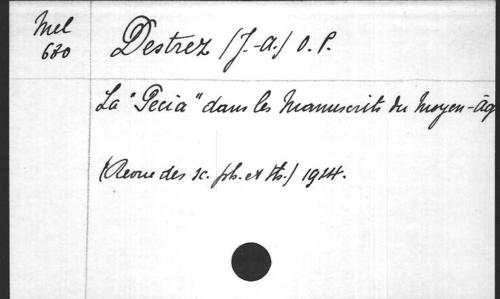 Mel
680
Destrez (J.-A.) O.P.
La "Pecia" dans les Manuscrits du Moyen-Ag
(Revue des sc. ph. et th.) 1924.